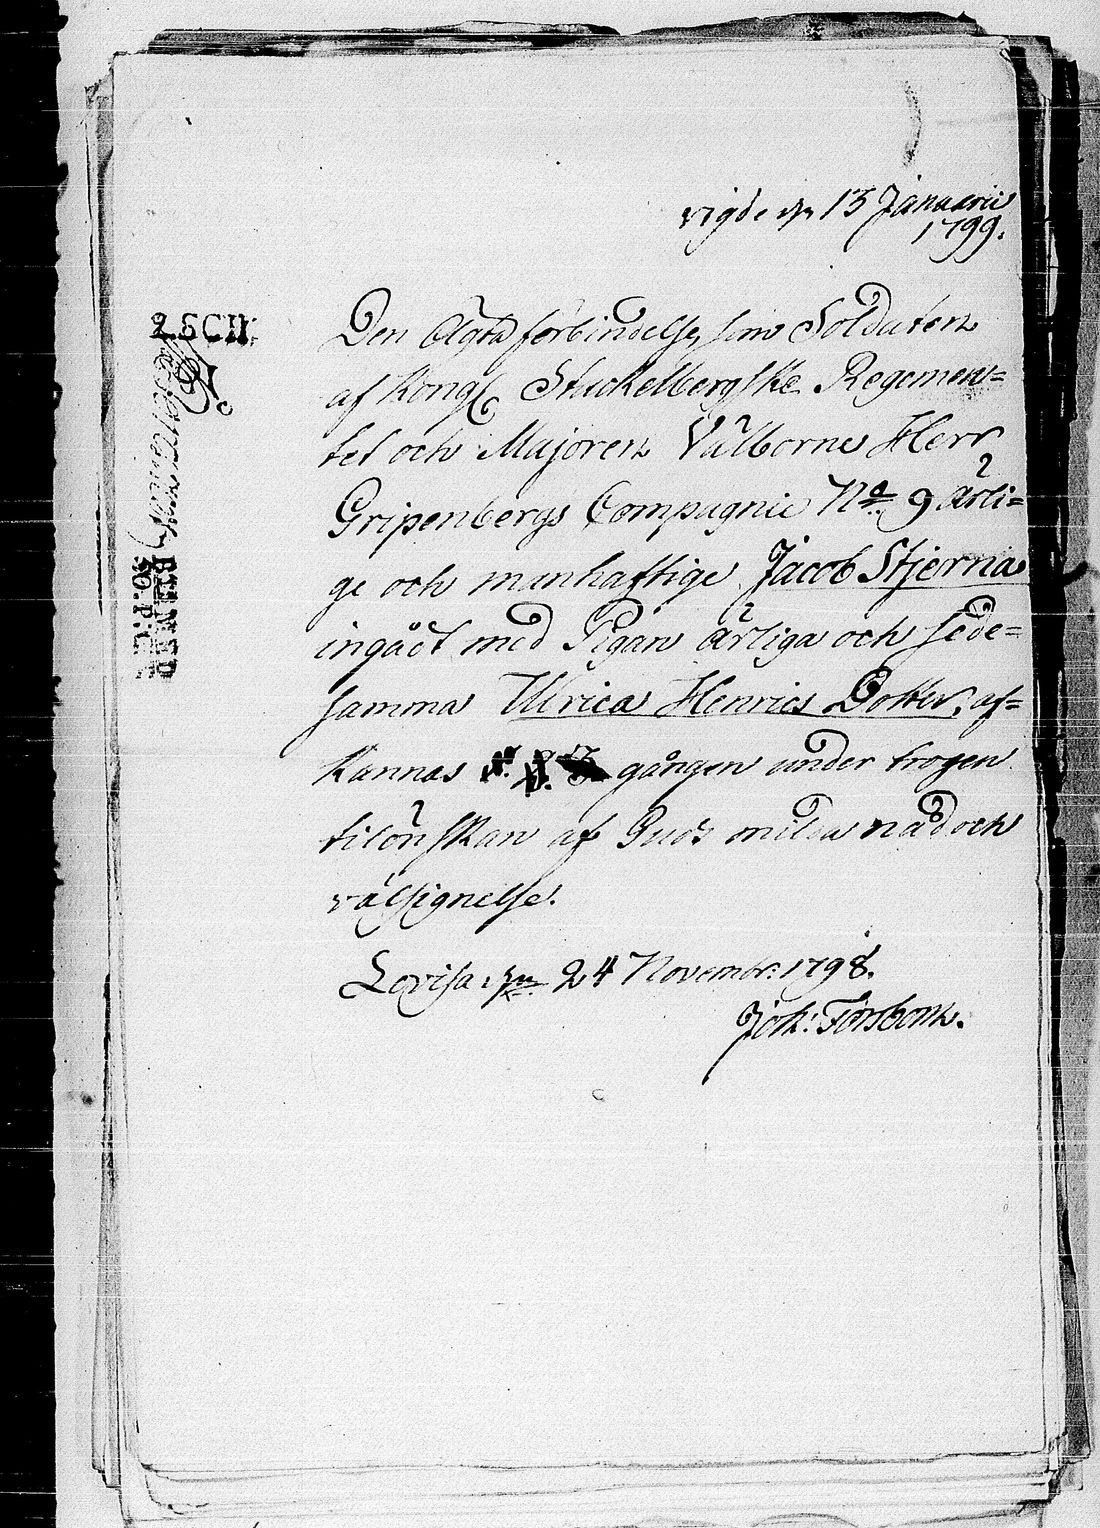 vigde d 13 Januarii
1799.
2 SCH.
Den Ägta förbindelse, som Soldaten
af Kongl Stackelbergske Regemen=
tet och Majoren Välborne Herr
Gripenbergs Compagnie No 9 ärli=
ge och manhaftige Jacob Stjerna
ingådt med Pigan ärliga och sede=
samma Ulrica Henrics Dotter, af=
kannas gången under trogen
tilönskan af Guds milda nåd och
välsignelse.
Lovisa d 24 Novembr. 1798.
Joh: Forsbom.